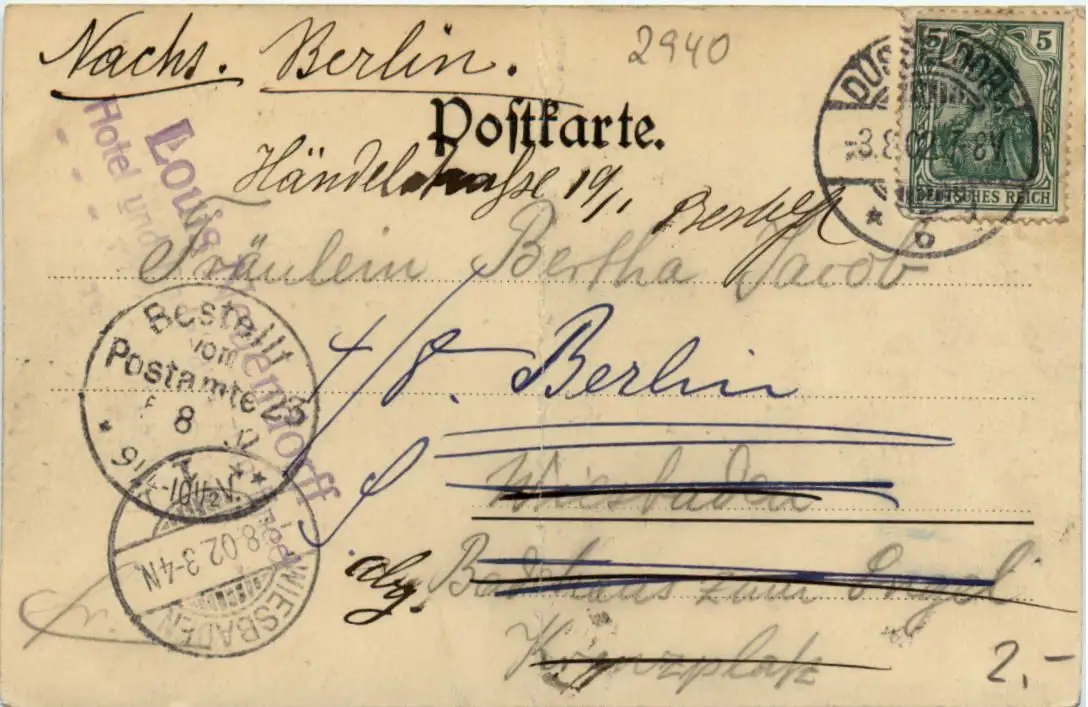 Nachs. Berlin.
2940
Postkarte.
5 5
DEUTSCHES REICH
DÜSSELDORF
3.8.02
* b
Händelstrasse 19/1.
Louis
Hotel und
Fräulein Bertha Jacob
Bestellt
vom
Postamte 22
8
Berlin
Wiesbaden
abg.
Badhaus zum Engel
Kranzplatz
WIESBADEN
8.02 3-4N.
2.-